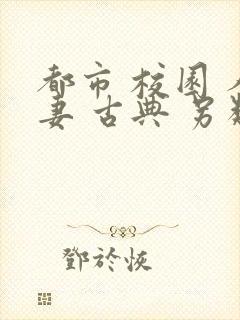 都市 校园
妻 古典 另
鄧於恢